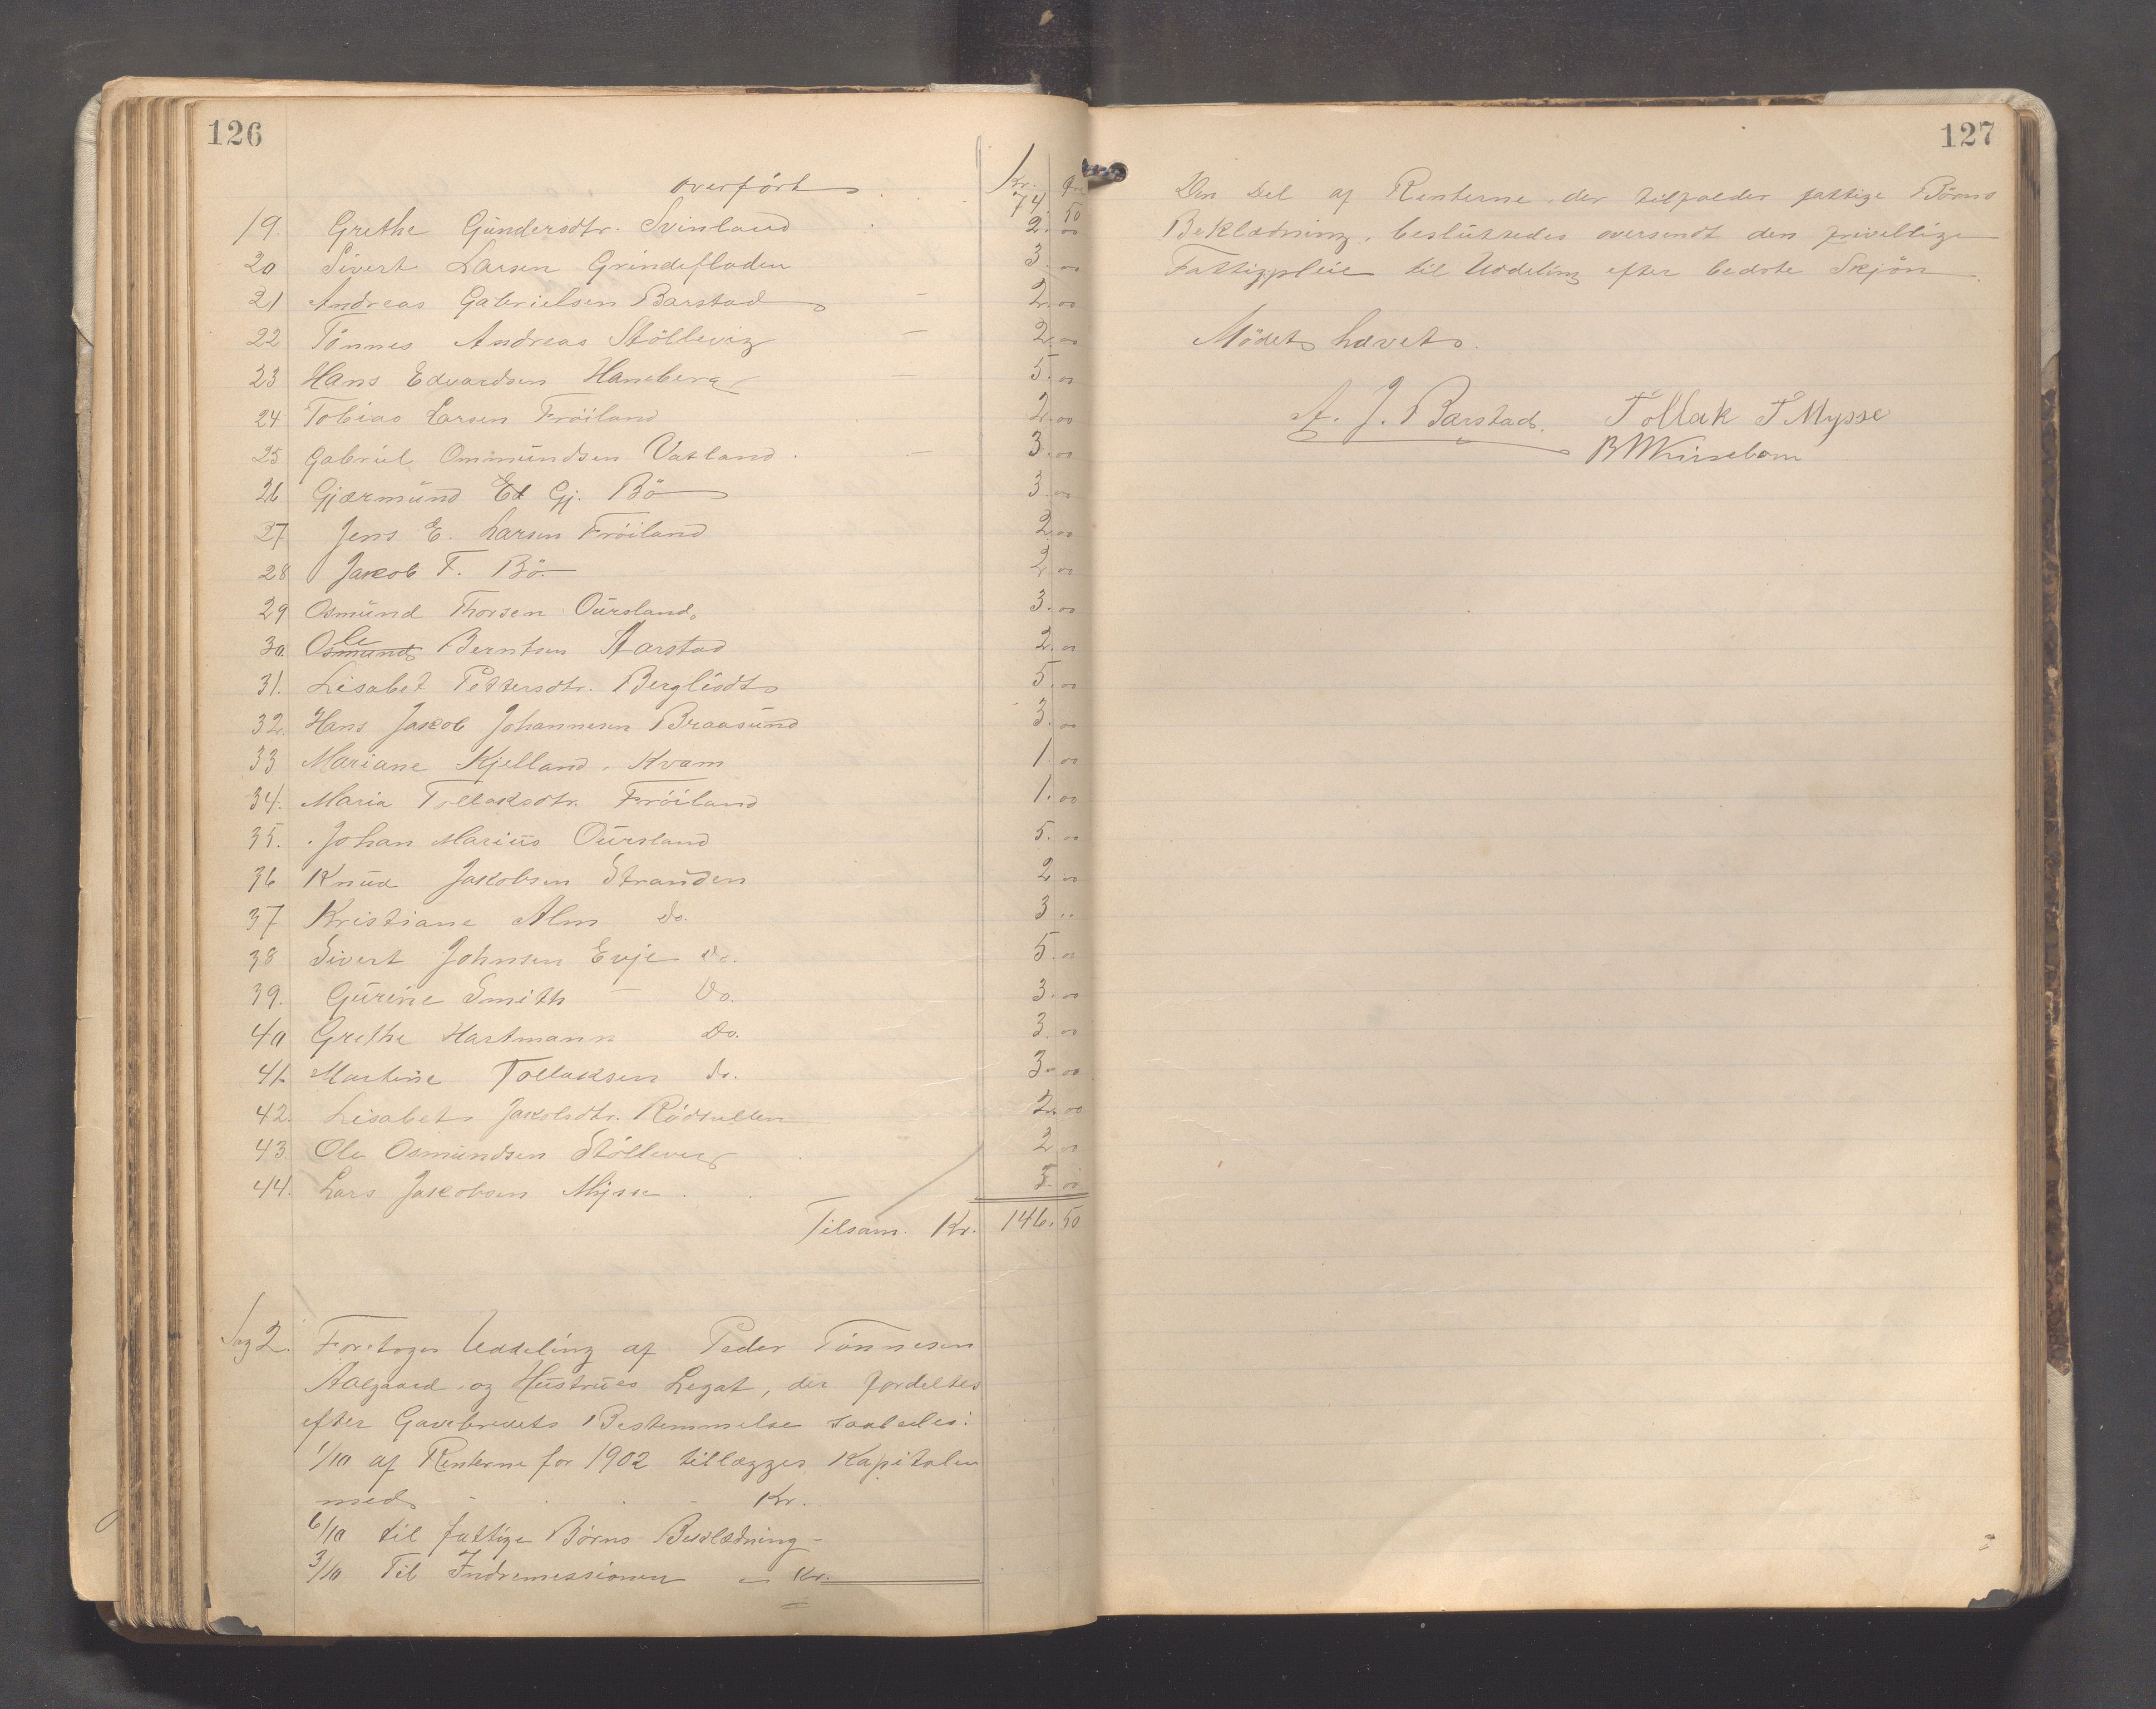 126
overført Kr. Øre
74. 50
19. Grethe Gundersdtr. Svinland 2. 00
20 Sivert Larsen Grindefladen 3. 00
21 Andreas Gabrielsen Barstad — 2. 00
22 Tönnes Andreas Stöllevig — 2. 00
23 Hans Edvardsen Haneberg — 5. 00
24. Tobias Larsen Fröiland 2. 00
25 Gabriel Ommundsen Vatland. — 3. 00
26 Gjærmund Ed Gj. Bö 3. 00
27 Jens E. Larsen Fröiland 2. 00
28 Jakob F. Bö. 2. 00
29 Osmund Thorsen Oursland. 3. 00
30. Ole Berntsen Aarstad 2. 00
31. Lisabet Pettersdtr. Berglidt 5. 00
32. Hans Jakob Johannesen Braasund 3. 00
33 Mariane Kjelland, Kvam 1. 00
34. Maria Tollaksdtr. Fröiland 1. 00
35. Johan Marius Oursland 5. 00
36 Knud Jakobsen Stranden 2 00
37 Kristiane Alm do. 3 ..
38 Sivert Johnsen Evje do. 5. 00
39. Gurine Smith — Do. 3. 00
40 Grethe Hartmann Do. 3. 00
41. Martine Tollaksen do. 3. 00
42. Lisabet Jakobsdtr. Rödsullen 2. 00
43. Ole Osmundsen Stöllevig 2 00
44. Lars Jakobsen Mysse. 3. 00
Tilsam. Kr. 146. 50
Sag 2. Foretoges Uddeling af Peder Tönnesen
Aalgaard og Hustrues Legat, der fordeltes
efter Gavebrevets Bestemmelse saaledes:
1/10 af Renterne for 1902 tillægges Kapitalen
med Kr.
6/10 til fattige Börns Beklædning —
3/10 Til Indremissionen — Kr.
127
Den Del af Renterne, der tilfalder fattige Börns
Beklædning, besluttedes oversendt den frivillige
Fattigpleie til Uddeling efter bedste Skjön.
Mödet hævet.
A. J. Barstad. Tollak T Mysse